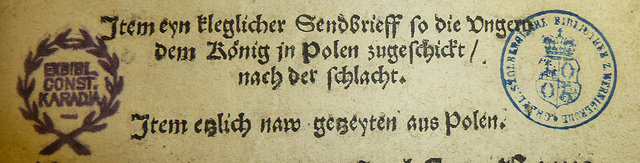 Item eyn kleglicher Sendbrieff so die Vngern
dem König jn Polen zugeschickt /
nach der schlacht.
Item etzlich naw getzeyten aus Polen.
EXBIBL
CONST.
KARADJA
STOLBERGISCHE BIBLIOTHEK Z. WERNIGERODE